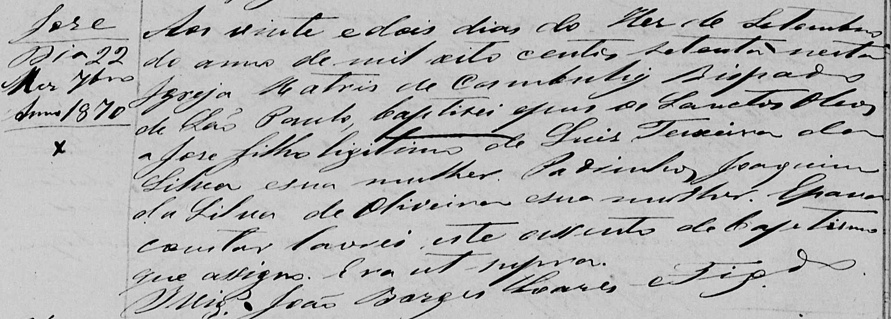 Jose
Dia 22
Mez 7bro
Anno 1870
x
Aos vinte e dois dias do Mez de Setembro
do anno de mil oito centos setenta nesta
Igreja Matris de Bispado
de São Paulo, baptisei e pus os Sanctos Oleos
a Jose filho ligitimo de Luis Teixeira da
Silva e sua mulher. Padrinhos Joaquim
da Silva de Oliveira e sua mulher. E para
constar lavrei este assento de baptismo
que assigno. Era ut supra.
João Borges Soares e Fig.do